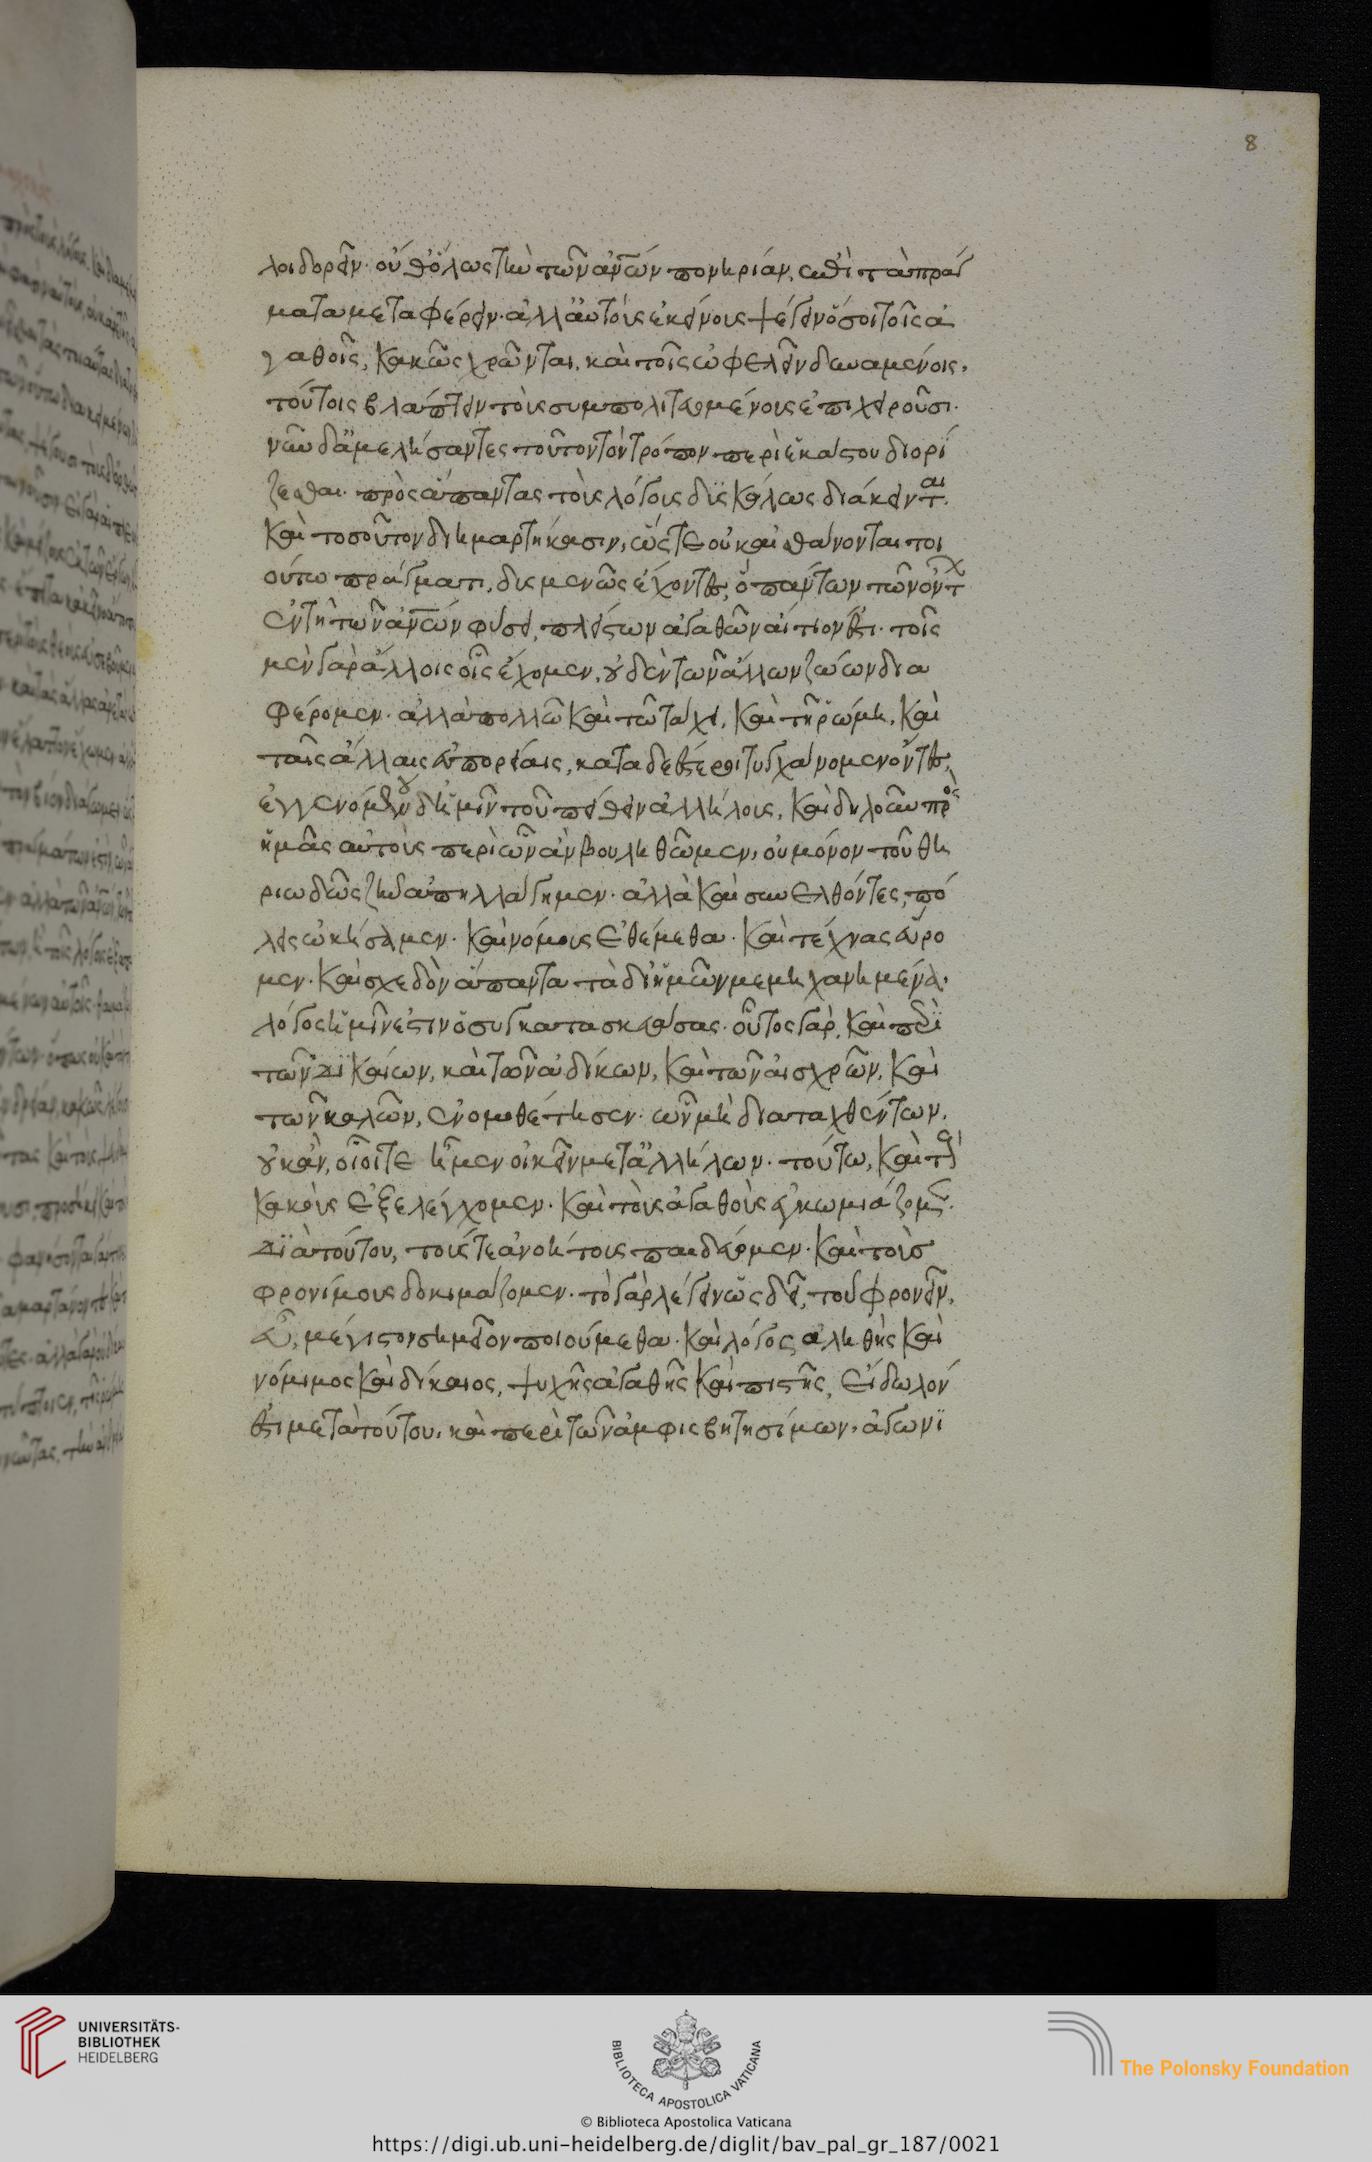 8
λοιδορεῖν· οὐδ' ὅλως τὴν τῶν ἀνῶν πονηρίαν, ἐπὶ τὰ πράγ
ματα μεταφέρειν· ἀλλ' αὐτοὺς ἐκείνους ψέγειν ὅσοι τοῖς ἀ
γαθοῖς, κακῶς χρῶνται, καὶ τοῖς ὠφελεῖν δυναμένοις,
τούτοις βλάπτειν τοὺς συμπολιτευομένους ἐπιχειροῦσι·
νῦν δ' ἀμελήσαντες τοῦτον τὸν τρόπον περὶ ἑκάστου διορί
ζεσθαι· πρὸς ἅπαντας τοὺς λόγους δυσκόλως διάκεινται·
καὶ τοσοῦτον διημαρτήκασιν, ὥστε οὐκ αἰσθάνονται τοι
ούτω πράγματι, δυσμενῶς ἔχοντες, ὃ πάντων τῶν ὄντων
ἐν τῇ τῶν ἀνῶν φύσει, πλείστων ἀγαθῶν αἴτιόν ἐστι· τοῖς
μὲν γὰρ ἄλλοις οἷς ἔχομεν, οὐδὲν τῶν ἄλλων ζώων δια
φέρομεν· ἀλλὰ πολλῶν καὶ τῶ τάχει, καὶ τῇ ῥώμη, καὶ
ταῖς ἄλλαις εὐπορείαις, καταδεέστεροι τυγχάνομεν ὄντες,
ἐγγενομένου δ' ἡμῖν τοῦ πείθειν ἀλλήλους, καὶ δηλοῦν πρὸς
ἡμᾶς αὐτοὺς περὶ ὧν ἂν βουληθῶμεν, οὐ μόνον τοῦ θη
ριωδῶς ζῆν ἀπηλλάγημεν· ἀλλὰ καὶ συνελθόντες, πό
λεις ὠκήσαμεν· καὶ νόμους ἐθέμεθα· καὶ τέχνας εὕρο
μεν· καὶ σχεδὸν ἅπαντα τὰ δι' ἡμῶν μεμηχανημένα·
λόγος ἡμῖν ἐστιν ὁ συγκατασκευάσας· οὗτος γὰρ, καὶ περὶ
τῶν δικαίων, καὶ τῶν ἀδίκων, καὶ τῶν αἰσχρῶν, καὶ
τῶν καλῶν, ἐνομοθέτησεν· ὧν μὴ διαταχθέντων,
οὐκ ἂν, οἷοί τε ἦμεν οἰκεῖν μετ' ἀλλήλων· τούτω, καὶ τοὺς
κακοὺς ἐξελέγχομεν· καὶ τοὺς ἀγαθοὺς ἐγκωμιάζομεν·
διὰ τούτου, τούς τε ἀνοήτους παιδεύομεν· καὶ τοὺς
φρονίμους δοκιμάζομεν· τὸ γὰρ λέγειν ὡς δεῖ, τοῦ φρονεῖν,
εὖ, μέγιστον σημεῖον ποιούμεθα· καὶ λόγος ἀληθὴς καὶ
νόμιμος καὶ δίκαιος, ψυχῆς ἀγαθῆς καὶ πιστῆς, εἴδωλόν
ἐστι μετὰ τούτου, καὶ περὶ τῶν ἀμφισβητησίμων, ἀγωνι
UNIVERSITÄTS-
BIBLIOTHEK
HEIDELBERG
BIBLIOTECA APOSTOLICA VATICANA
The Polonsky Foundation
© Biblioteca Apostolica Vaticana
https://digi.ub.uni-heidelberg.de/diglit/bav_pal_gr_187/0021